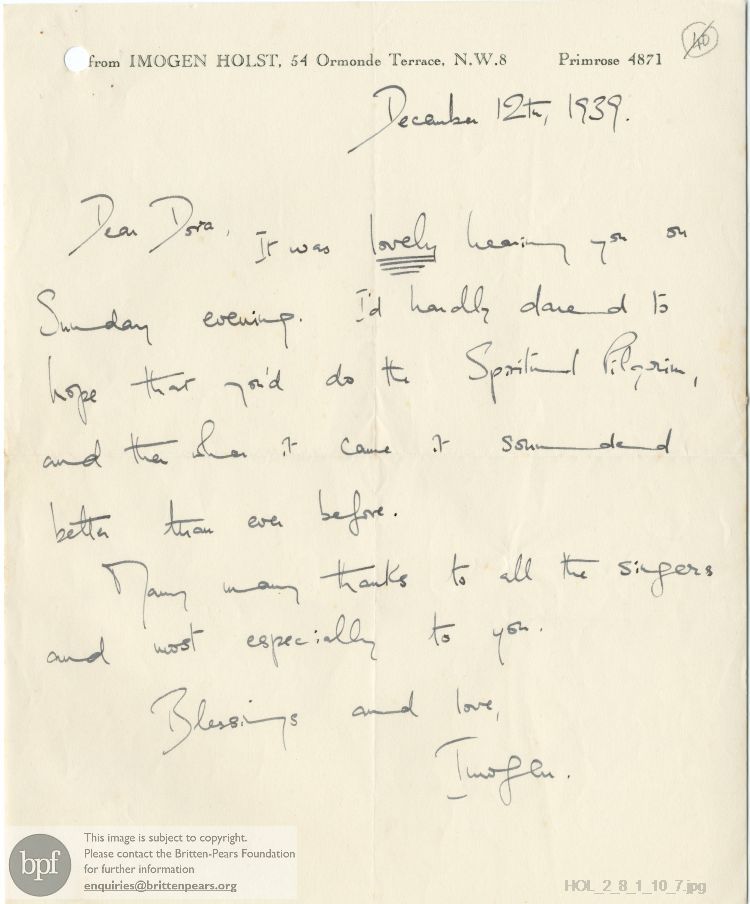 40
from IMOGEN HOLST, 54 Ormonde Terrace, N.W.8 Primrose 4871
December 12th, 1939.
Dear Dora,
It was lovely hearing you on
Sunday evening. I'd hardly dared to
hope that you'd do the Spiritual Pilgrim,
and then when it came it sounded
better than ever before.
Many many thanks to all the singers
and most especially to you.
Blessings and love,
Imogen.
bpf
This image is subject to copyright.
Please contact the Britten-Pears Foundation
for further information
enquiries@brittenpears.org
HOL_2_8_1_10_7.jpg